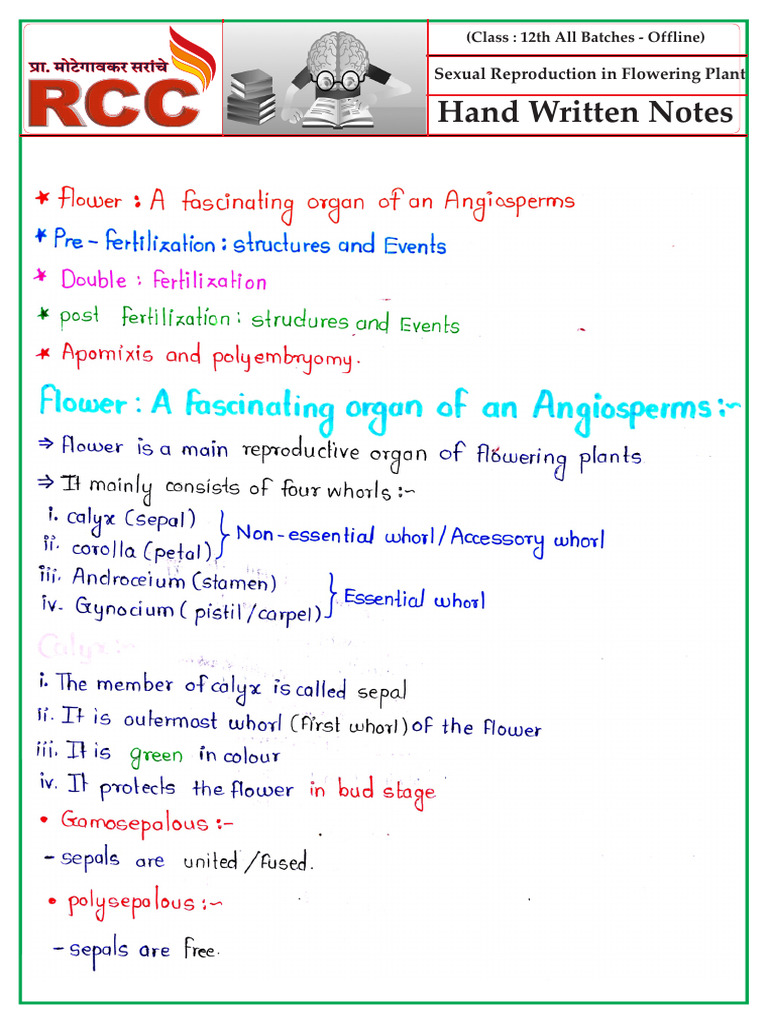 (Class : 12th All Batches - Offline)
प्रा. मोटेगावकर सरांचे
RCC
Sexual Reproduction in Flowering Plant
Hand Written Notes
* Flower : A fascinating organ of an Angiosperms
* Pre-fertilization : structures and Events
* Double : fertilization
* post fertilization : structures and Events
* Apomixis and polyembryomy.
Flower : A fascinating organ of an Angiosperms :-
⇒ flower is a main reproductive organ of flowering plants
⇒ It mainly consists of four whorls :-
i. calyx (sepal)
ii. corolla (petal)
Non-essential whorl / Accessory whorl
iii. Androceium (stamen)
iv. Gynocium ( pistil / carpel)
Essential whorl
Calyx :-
i. The member of calyx is called sepal
ii. It is outermost whorl (first whorl) of the flower
iii. It is green in colour
iv. It protects the flower in bud stage
• Gamosepalous :-
- sepals are united / fused.
• polysepalous :-
- sepals are free.